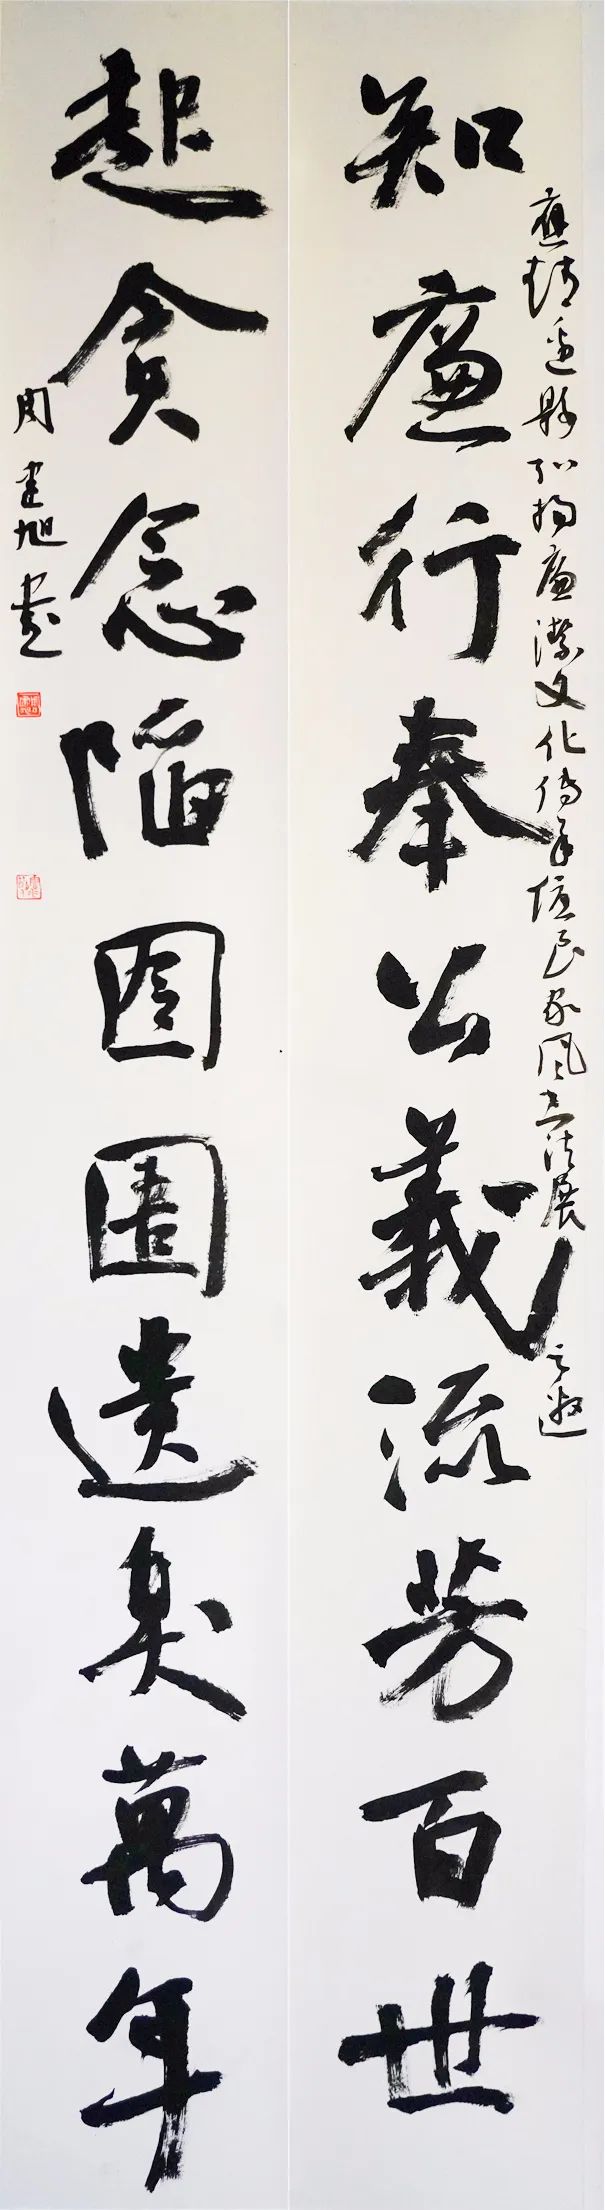 應靖邊縣弘揚廉潔文化傳承優良家風書法展之邀
知廉行奉公義流芳百世
起貪念陷囹圄遺臭萬年
周建旭書